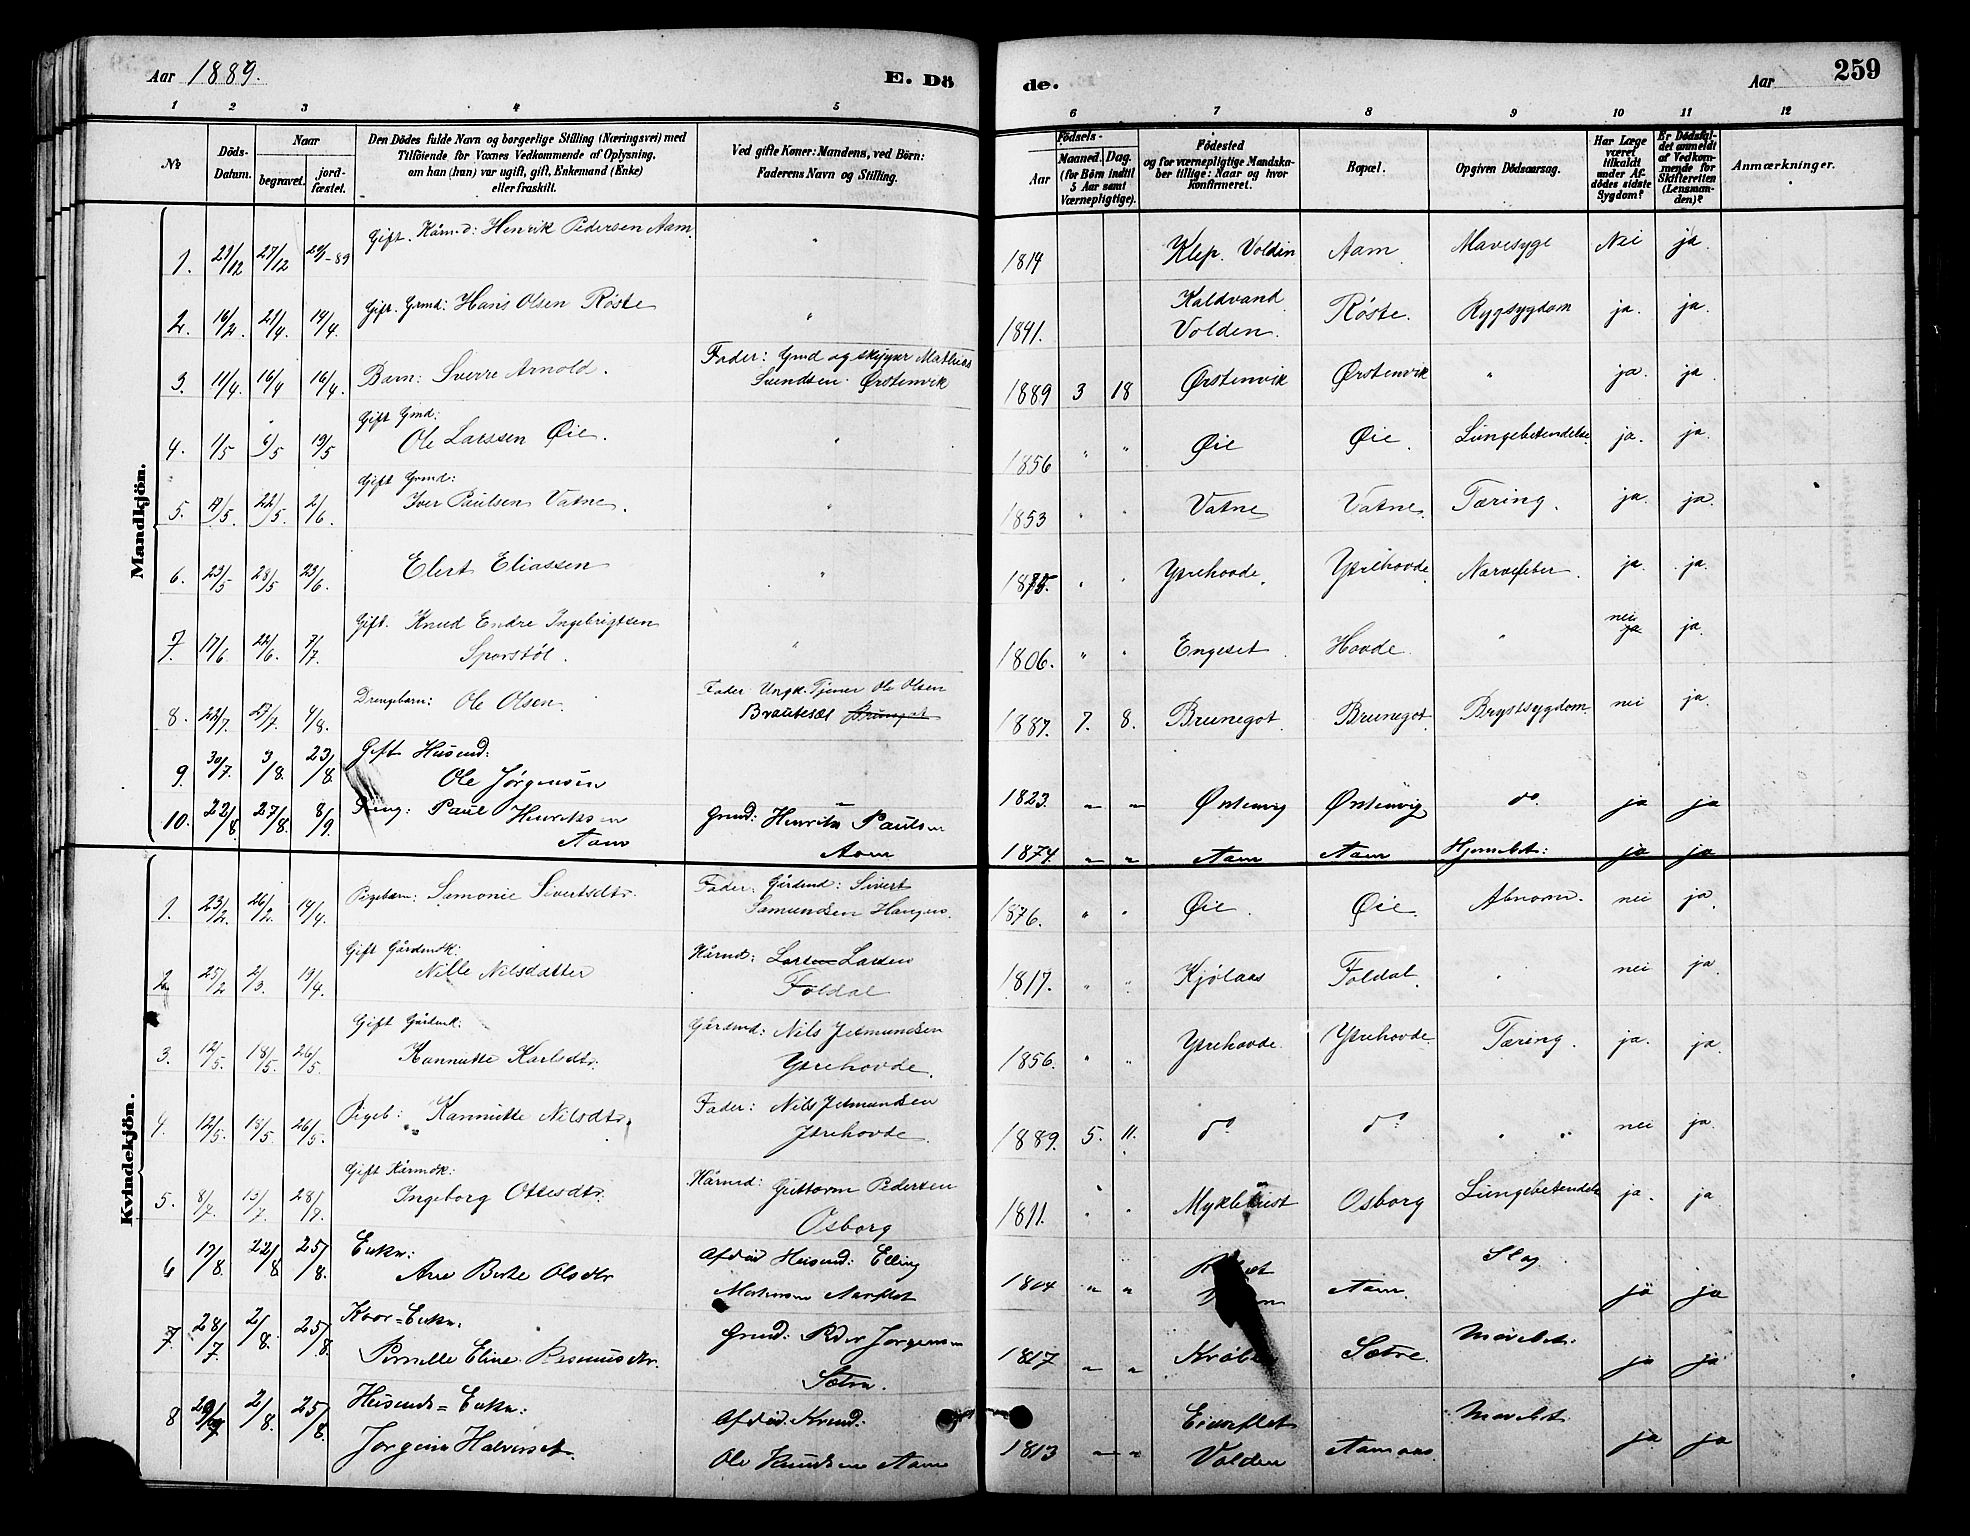 Aar 1889.
E. Dö
de.
Aar
259
1 2 3 4 5 6 7 8 9 10 11 12
No
Döds-
Datum.
Naar
begravet.
jord-
fæstet.
Den Dödes fulde Navn og borgerlige Stilling (Næringsvei) med
Tilföiende for Voxnes Vedkommende af Oplysning,
om han (hun) var ugift, gift, Enkemand (Enke)
eller fraskilt.
Ved gifte Koner: Mandens, ved Börn:
Faderens Navn og Stilling.
Födsels-
Aar
Maaned. Dag.
(for Börn indtil
5 Aar samt
Værnepligtige).
Födested
og for værnepligtige Mandska-
ber tillige: Naar og hvor
konfirmeret.
Bopæl.
Opgiven Dödsaarsag.
Har Læge
været
tilkaldt
under Af-
dödes sidste
Sygdom?
Er Dödsfal-
det anmeldt
af Vedkom-
mende for
Skifteretten
(Lensman-
den)?
Anmærkninger.
Mandkjön.
1. 21/12 27/12 Gift. Kårmd: Henrik Pedersen Aam. " 1814 Klep. Volden Aam Mavesyge Nei ja
2. 16/2 21/4 14/4. Gift. Grmd: Hans Olsen Røste " 1841. Kaldvand
Volden. Røste. Rygsygdom ja. ja.
3. 11/4. 16/4 16/4. Barn: Sverre Arnold. Fader: Gmd og skipper Mathias
Svendsen Ørstenvik 1889 3 18 Ørstenvik Ørstenvik " ja. ja.
4. 1/5 6/5 19/5 Gift Gmd:
Ole Larssen Øie. " 1856 " " Øie Øie. Lungebetendelse ja. ja.
5. 17/5. 22/5. 2/6 Gift Grmd:
Iver Paulsen Vatne. " 1853 " " Vatne Vatne. Tæring. ja. ja.
6. 23/5 28/5 23/6. Elert Eliassen " 1875. " " Ytrehovde. Ytrehovde. Nervefeber. ja. ja.
7. 17/6. 22/6. 7/7. Gift. Knud Endre Ingebrigtsen
Sporstøl. " 1806. " " Engeset Hovde. " nei
ja ja.
8. 22/7. 27/7. 4/8. Drengebarn: Ole Olsen. Fader Ungk. Tjener Ole Olsen
Brautesæt Brunegot 1887. 7. 8. Brunegot Brunegot. Brystsygdom. nei ja.
9. 30/7. 3/8. 23/8. Gift Husmd:
Ole Jørgensen " 1823. " " Ørstenvig Ørstenvig do. ja ja
10. 22/8. 27/8. 8/9. Dreng: Paul Henriksen
Aam Grmd: Henrik Paulsen
Aam 1874. " " Aam Aam Hjernebet: ja ja
Kvindekjön.
1. 23/2. 26/2. 14/4. Pigebarn: Samonie Sivertsdtr. Fader: Gårdmd: Sivert
Samundsen 1876. " " Øie. Øie. nei ja.
2. 25/2 2/3. 19/4. Gift Gårdmdk:
Nille Nilsdatter Kårmd: Larsen Larsen
Foldal 1817. " " Kjølaas Foldal. " nei ja.
3. 12/5. 18/5. 26/5. Gift Gårdmk:
Kannutte Karlsdtr. Gårdmd: Nils Jetmundsen
Ytrehovde. 1856. " " Ytrehovde. Ytrehovde. Tæring. ja. ja.
4. 12/5. 18/5. 26/5. Pigeb: Kannutte Nilsdtr. Fader: Nils Jetmundsen
Ytrehovde. 1889. 5. 11. do do " " nei ja.
5. 8/7. 13/7 28/7. Gift Kårmdk:
Ingeborg Ottesdtr. Kårmd: Guttorm Pedersen
Osborg 1811. " " Myklebust Osborg Lungebetendelse ja. ja
6 17/8. 22/8 25/8. Enke:
Ane Berte Olsdtr Afdød Husmd: Elling
Mortensen Aarflot 1804 " " Aam. Slag ja ja
7. 28/7 2/8. 25/8. Kaar-Enke.
Pernille Eline Rasmusdtr. Grmd: Peder Jørgensen
Sætre. 1817 " " Sætre. Mavebet: ja ja
8 2/8. 25/8. Husmds-Enke:
Jørgine Halvorset. Afdød. Kmd:
Ole Knudsen Aam 1813 " " Eivarflot
Volden Aamaas Mavebet: ja ja